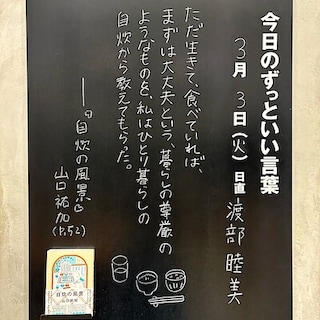 今日のずっといい言葉
3月 3日(火) 日直 渡部 睦美
ただ生きて、食べていれば、
まずは大丈夫という、暮らしの尊厳の
ようなものを、私はひとり暮らしの
自炊から教えてもらった。
──『自炊の風景』
山口祐加
(P.52)
自炊の風景
山口祐加